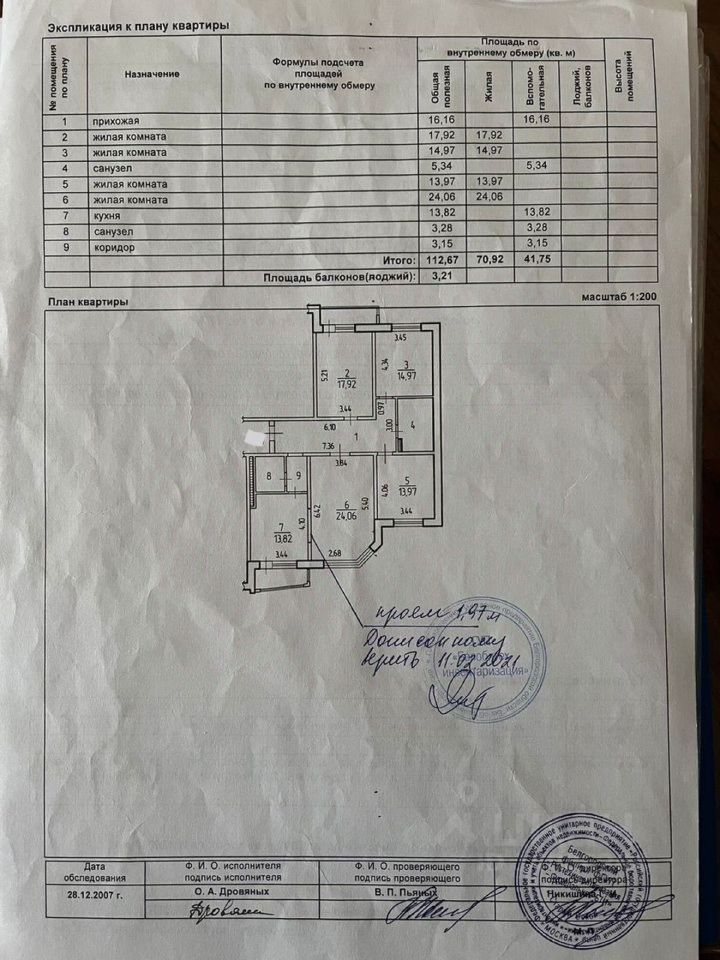 Экспликация к плану квартиры
№ помещения по плану
Назначение
Формулы подсчета
площадей
по внутреннему обмеру
Площадь по
внутреннему обмеру (кв. м)
Общая полезная
Жилая
Вспомо-
гательная
Лоджий, балконов
Высота помещений
1 прихожая 16,16 16,16
2 жилая комната 17,92 17,92
3 жилая комната 14,97 14,97
4 санузел 5,34 5,34
5 жилая комната 13,97 13,97
6 жилая комната 24,06 24,06
7 кухня 13,82 13,82
8 санузел 3,28 3,28
9 коридор 3,15 3,15
Итого: 112,67 70,92 41,75
Площадь балконов(лоджий): 3,21
План квартиры
масштаб 1:200
3.45
5.21
2
17,92
4.34
3
14,97
3.44
0.97
6.10
1
3.00
4
7.36
3.84
8
9
6
24,06
5.40
4.06
5
13,97
6.42
3.44
7
13,82
4.10
3.44
2.68
проем 1,97 м
11.02.2021
инвентаризация»
Дата
обследования
Ф. И. О. исполнителя
подпись исполнителя
Ф. И. О. проверяющего
подпись проверяющего
подпись директора
28.12.2007 г.
О. А. Дровяных
В. П. Пьяных
МОСКВА